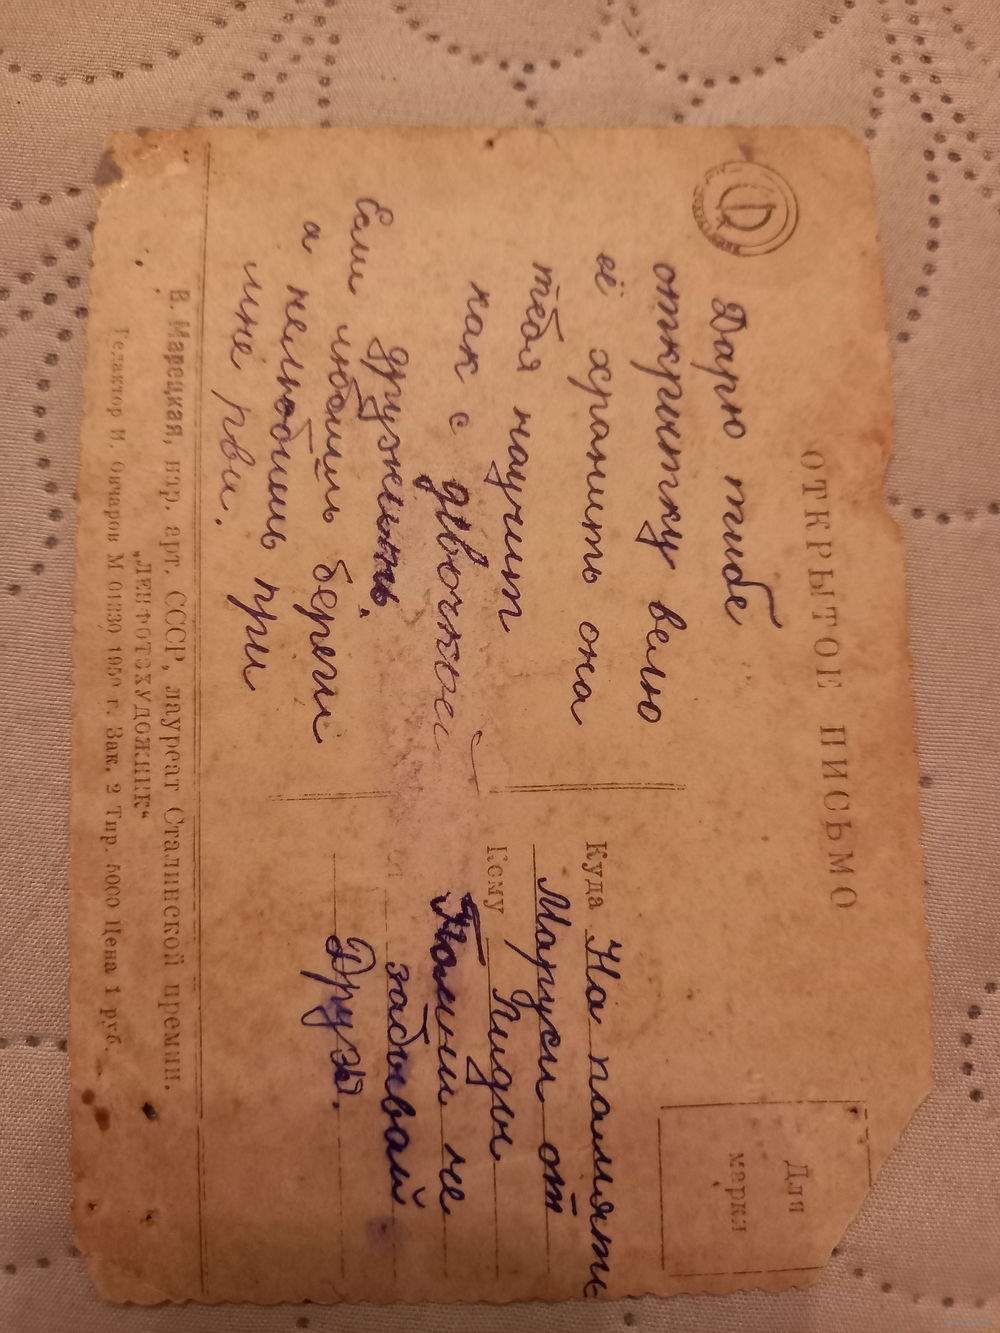 ОТКРЫТОЕ ПИСЬМО
Для
марки
Дарю тибе
открытку велю
её хранить она
тебя научит
как с девочкой
дружить.
Если любишь береги
а нелюбишь при
мне рви.
Куда На память
Маруси от
Кому Лиды
Помни не
забывай
Друж.
В. Марецкая, нар. арт. СССР, лауреат Сталинской премии.
„ЛЕНФОТОХУДОЖНИК“
Редактор И. Овчаров М 01330 1950 г. Зак. 2 Тир. 5000 Цена 1 руб.